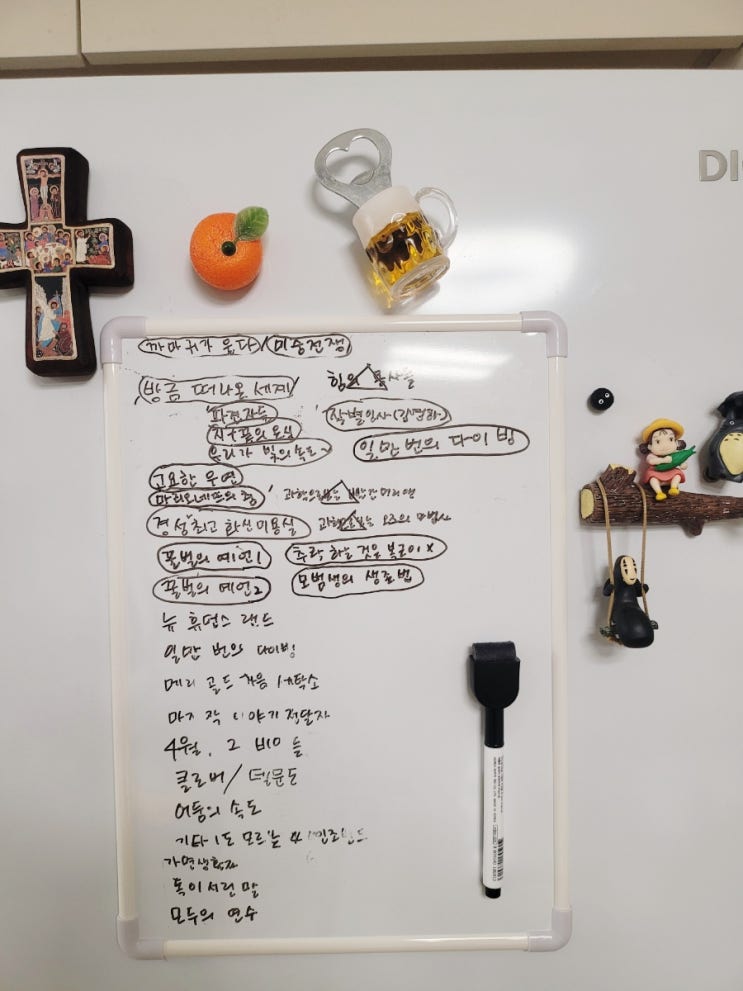 DI
까마귀가 웁다/미중전쟁
방금 떠나온 세계
힘의 용사들
파견자들
작별인사(김영하)
지구끝의 온실
우리가 빛의속도
일만 번의 다이빙
고요한 우연
마리오네뜨의 청
과학으로
경성 최고 화신미용실
오즈의 마법사
꿀벌의 예언1
추락 하는 것을 복근이 X
꿀벌의 예언2
모범생의 생존법
뉴 휴먼스 랜드
일만 번의 다이빙
메리 골드 마음 세탁소
마지막 이야기 전달자
4월, 그 비 
클로버/델문도
어둠의 속도
기타 1도 모르는 4인조밴드
가면생활자
독이 서린 말
모두의 연수